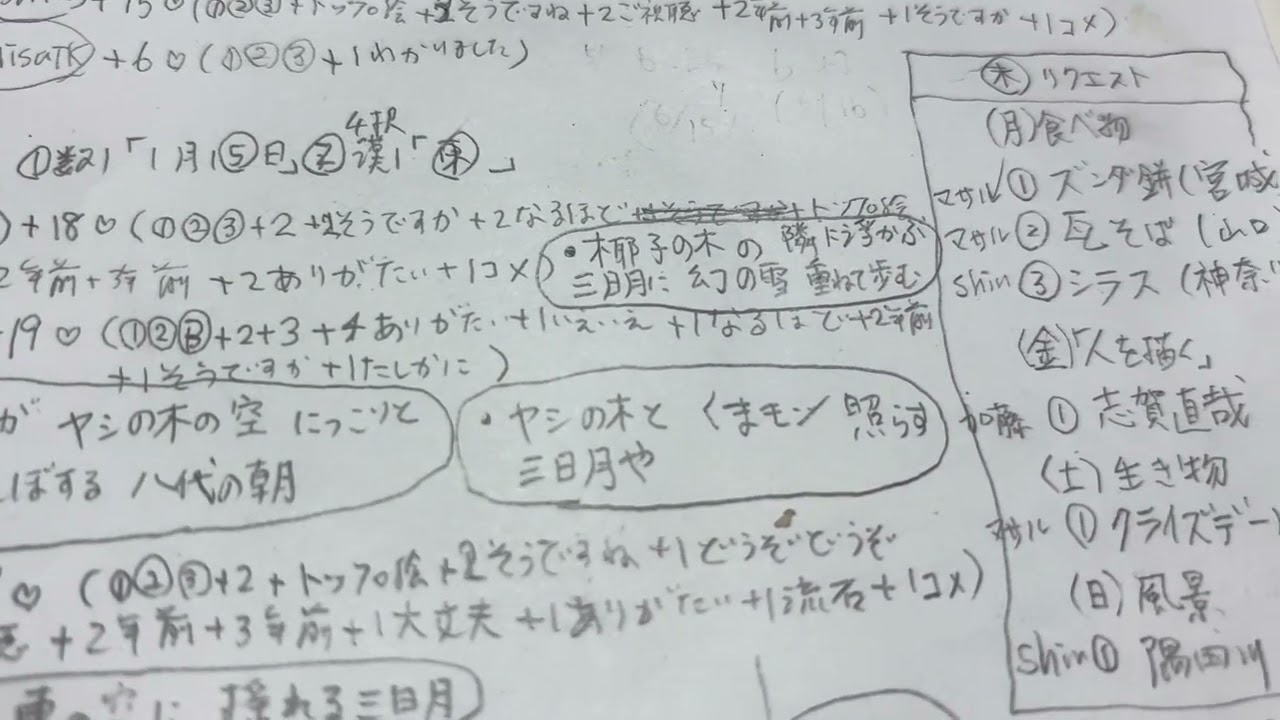 +15♡(①②③+トップ絵+2そうですね+2ご視聴+2年前+3年前+1そうですか+1コメ)
isaTK +6♡(①②③+1わかりました)
①数1「1月1⑤日」② 4択 漢1「」
)+18♡(①②③+2+2そうですか+2なるほど+トップ絵
2年前+3年前+2ありがたい+1コメ)
・椰子の木の隣
三日月に幻の雪 重ねて歩む
19♡(①②③+2+3+4ありがたい+1いえいえ+1なるほど+2年前
+1そうですか+1たしかに)
が ヤシの木の空 にっこりと
ぼする 八代の朝
・ヤシの木と くまモン 照らす
三日月や
♡(①②③+2+トップ絵+2そうですね+1どうぞどうぞ
+2年前+3年前+1大丈夫+1ありがたい+1流石+1コメ)
空に 揺れる三日月
㊍リクエスト
(月)食べ物
マサル ① ズンダ餅(宮城
マサル ② 瓦そば(山口
shin ③ シラス(神奈
(金)「人を描く」
加藤 ① 志賀直哉
(土)生き物
マサル ① クライズデー
(日)風景
shin ① 隅田川